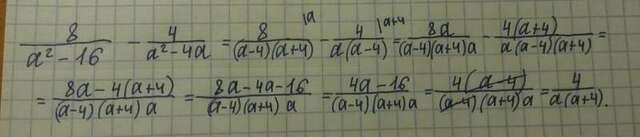 8/(a²-16) - 4/(a²-4a) = 8/((a-4)(a+4)) |a - 4/(a(a-4)) |a+4 = 8a/((a-4)(a+4)a) - 4(a+4)/(a(a-4)(a+4)) =
= (8a-4(a+4))/((a-4)(a+4)a) = (8a-4a-16)/((a-4)(a+4)a) = (4a-16)/((a-4)(a+4)a) = 4(a-4)/((a-4)(a+4)a) = 4/(a(a+4)).